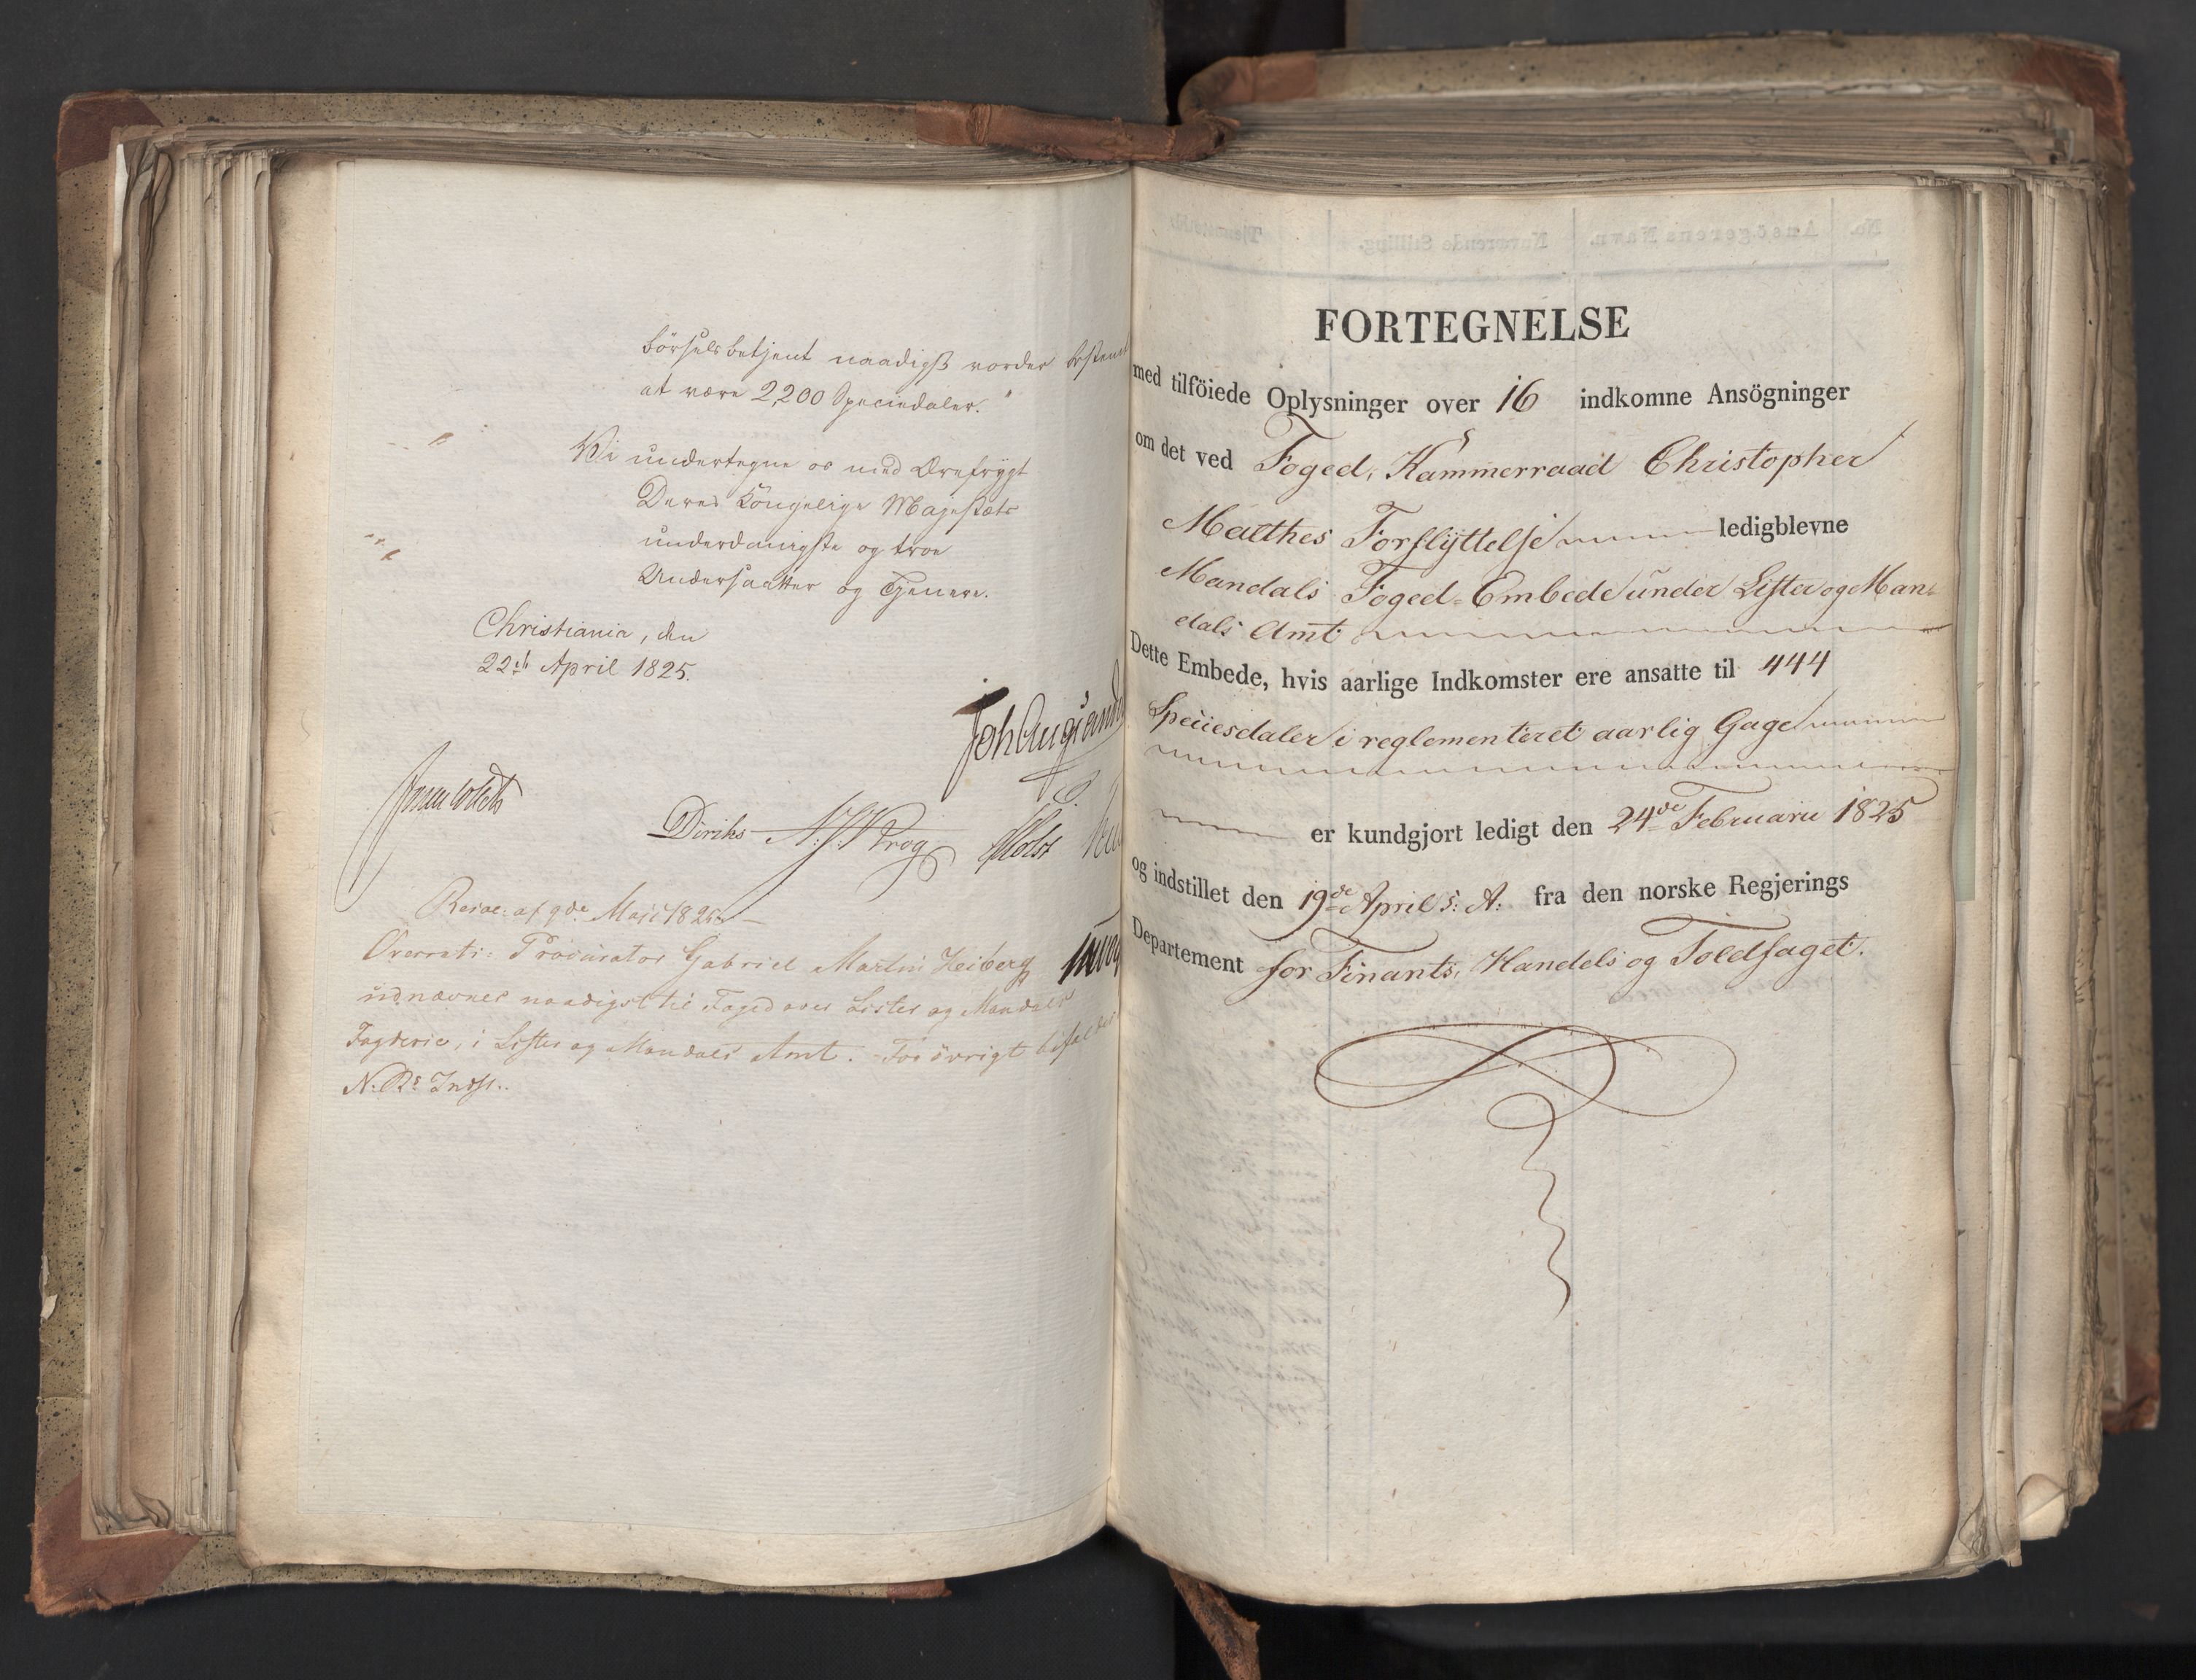 börselsbetjent naadigst vorder bestemt
at være 2,200 Speciedaler."
Vi undertegne os med Ærefrygt
Deres Kongelige Majestæts
underdanigste og troe
Undersaatter og Tjenere.
Christiania, den
22de April 1825.
Joh Aug Sand
Diriks N. J. Krog Holst
Resol: af 9de Maji 1825.
Overrets-Procurator Gabriel Martini Heiberg
udnævnes naadigst til Foged over Lister og Mandals
Fogderie, i Lister og Mandals Amt. - For övrigt bifaldes
N: Rs Indst.
FORTEGNELSE
med tilföiede Oplysninger over 16 indkomne Ansögninger
om det ved Foged, Kammerraad Christopher
Malthes Forflyttelse ledigblevne
Mandals Foged-Embede under Lister og Man-
dals Amt
Dette Embede, hvis aarlige Indkomster ere ansatte til 444
Speciesdaler i reglementeret aarlig Gage
er kundgjort ledigt den 24de Februarii 1825
og indstillet den 19de April s: A: fra den norske Regjerings
Departement for Finants, Handels og Toldfaget.
No. Ansögerens Navn. Nuværende Stilling.